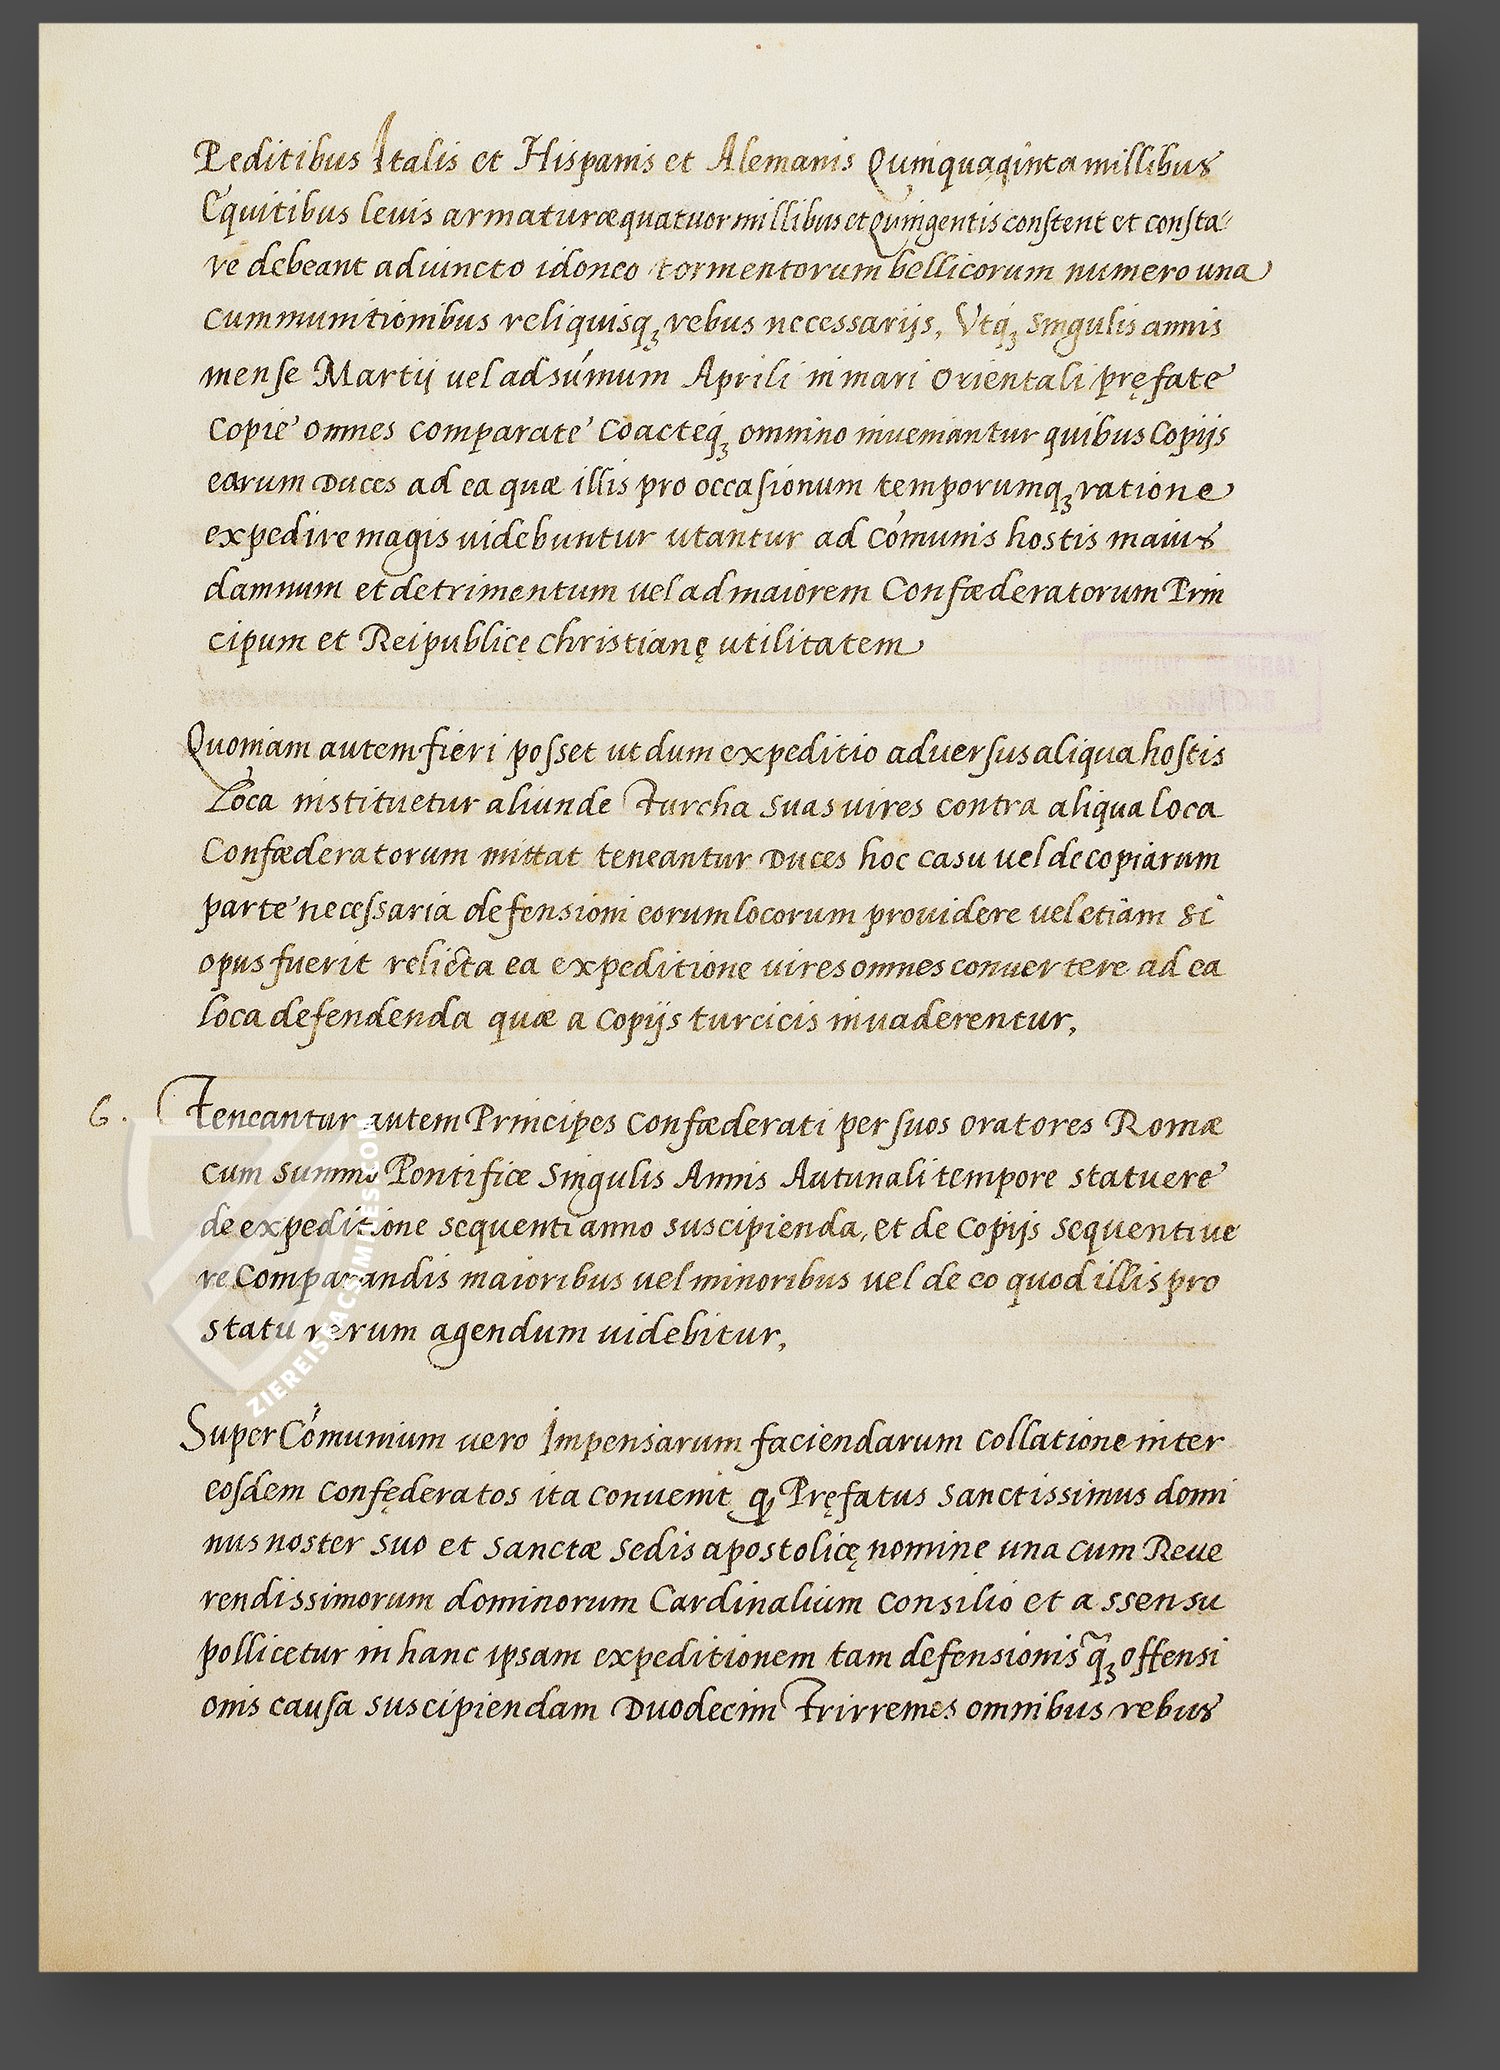 Peditibus Italis et Hispanis et Alemanis Quinquaginta millibus
Equitibus leuis armaturæ quatuor millibus et Quingentis constent et consta-
re debeant adiuncto idoneo tormentorum bellicorum numero una
cum munitionibus reliquisqꝫ rebus necessarijs, Vtqꝫ singulis annis
mense Martij uel ad súmum Aprili in mari Orientali pręfate
Copie omnes comparate Coacteqꝫ omnino inueniantur quibus Copijs
earum Duces ad ea quæ illis pro occasionum temporumqꝫ ratione
expedire magis uidebuntur utantur ad Cómunis hostis maius
damnum et detrimentum uel ad maiorem Confæderatorum Prin
cipum et Reipublicę christianę utilitatem
Quoniam autem fieri posset ut dum expeditio aduersus aliqua hostis
Loca institueretur aliunde Turcha suas uires contra aliqua loca
Confæderatorum mittat teneantur Duces hoc casu uel de copiarum
parte necessaria defensioni eorum locorum prouidere uel etiam si
opus fuerit relicta ea expeditione uires omnes conuertere ad ea
loca defendenda quæ a Copijs turcicis inuaderentur,
6. Teneantur autem Principes Confæderati per suos oratores Romæ
cum summo Pontifice singulis Annis Autunali tempore statuere
de expeditione sequenti anno suscipienda, et de Copijs sequenti ue
re Comparandis maioribus uel minoribus uel de eo quod illis pro
statu rerum agendum uidebitur,
Super Cómunium uero Impensarum faciendarum collatione inter
eosdem confęderatos ita conuenit ꝙ Pręfatus sanctissimus domi
nus noster suo et sanctæ sedis apostolicę nomine una cum Reue
rendissimorum dominorum Cardinalium consilio et assensu
pollicetur in hanc ipsam expeditionem tam defensionis q̃ꝫ offensi
onis causa suscipiendam Duodecim Trirremes omnibus rebus
ZIEREIS FACSIMILES.COM